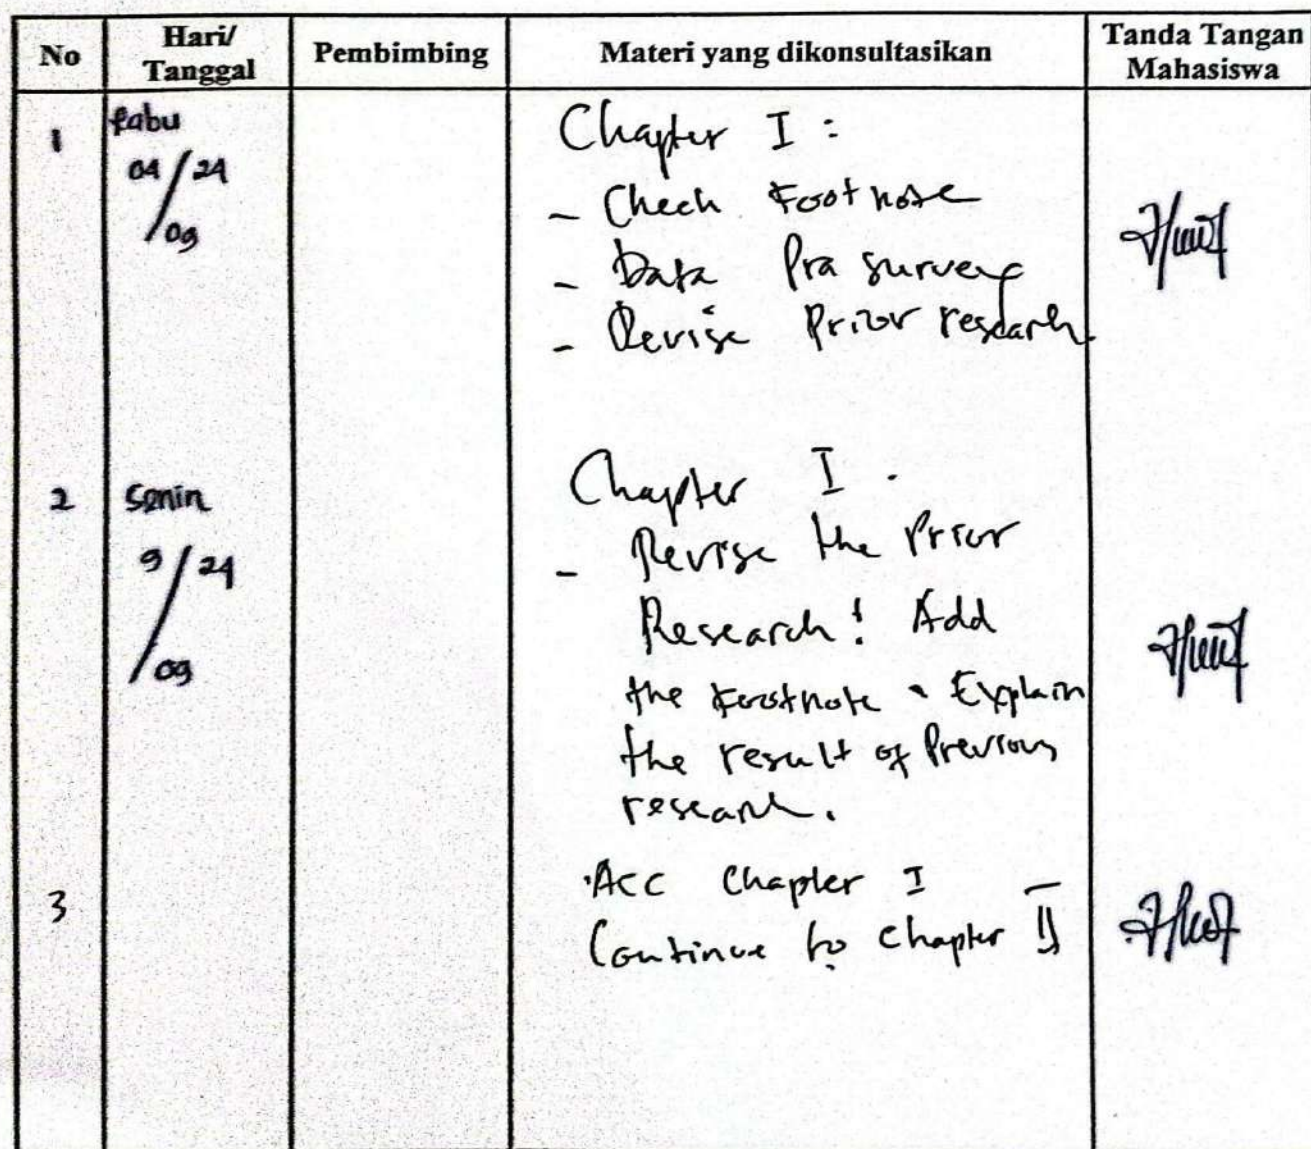 No
Hari/
Tanggal
Pembimbing
Materi yang dikonsultasikan
Tanda Tangan
Mahasiswa
1
Rabu
04/24
/09
Chapter I :
- Check Footnote
- Data Pra survey
- Revise Prior research
2
Senin
9/24
/09
Chapter I.
- Revise the Prior
Research! Add
the Footnote. Explain
the result of Previous
research.
3
Acc Chapter I
Continue to Chapter II